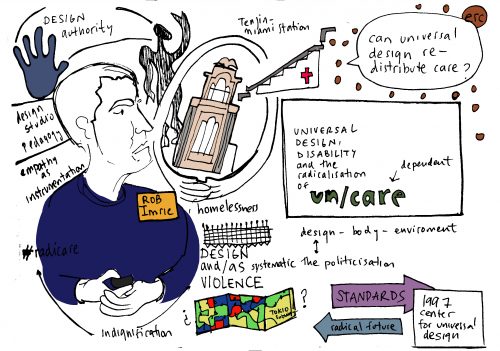 DESIGN
authority
Tenjin-
minami station
erc
can universal
design re-
distribute care?
design
studio
pedagogy
empathy
as
instrumentation
UNIVERSAL
DESIGN,
DISABILITY
and the
radicalisation
of un/care
dependent
ROB
Imrie
homelessness
design - body - enviroment
#radicare
DESIGN
and/as systematic the politicisation
VIOLENCE
¿ ?
TOKIO
STANDARDS
1997
center
for universal
design
radical future
indignification